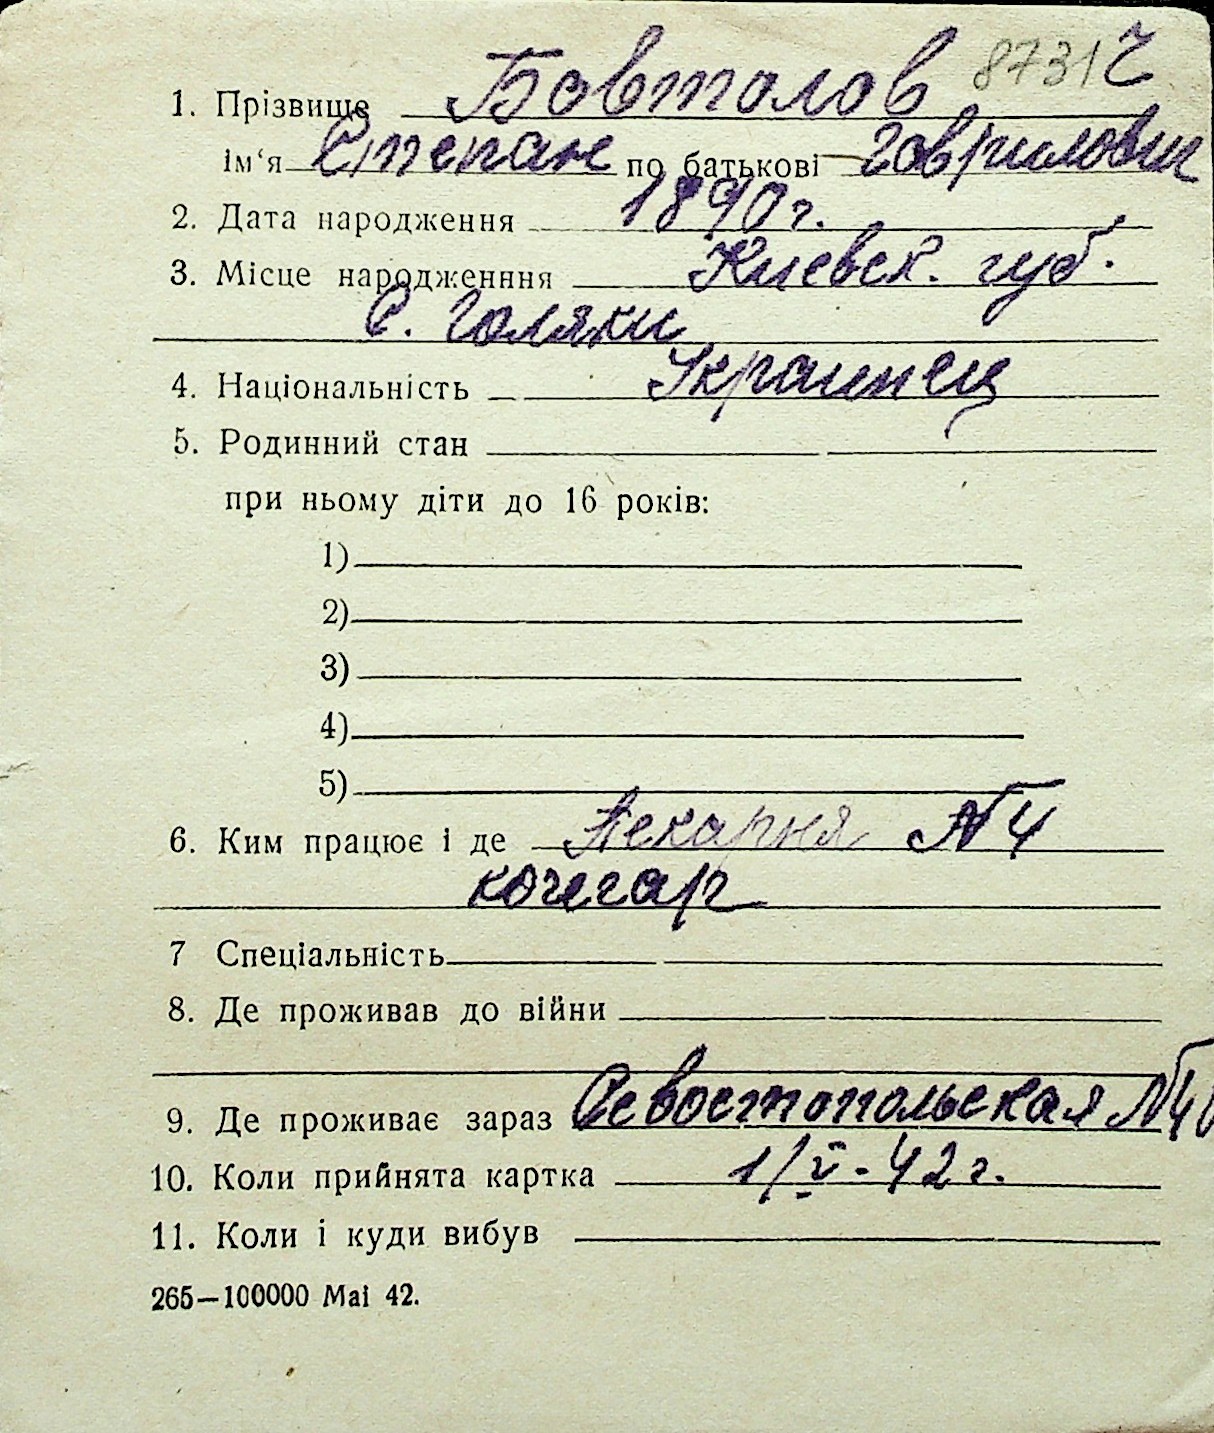 8731 Ч
1. Прізвище Бовтолов
ім'я Степан по батькові Гаврилович
2. Дата народження 1890 г.
3. Місце народженння Киевск. губ.
с. Голяки
4. Національність Украинец
5. Родинний стан
при ньому діти до 16 років:
1)
2)
3)
4)
5)
6. Ким працює і де Пекарня №4
кочегар
7 Спеціальність
8. Де проживав до війни
9. Де проживає зараз Севостопольская №40
10. Коли прийнята картка 1/V-42 г.
11. Коли і куди вибув
265—100000 Mai 42.